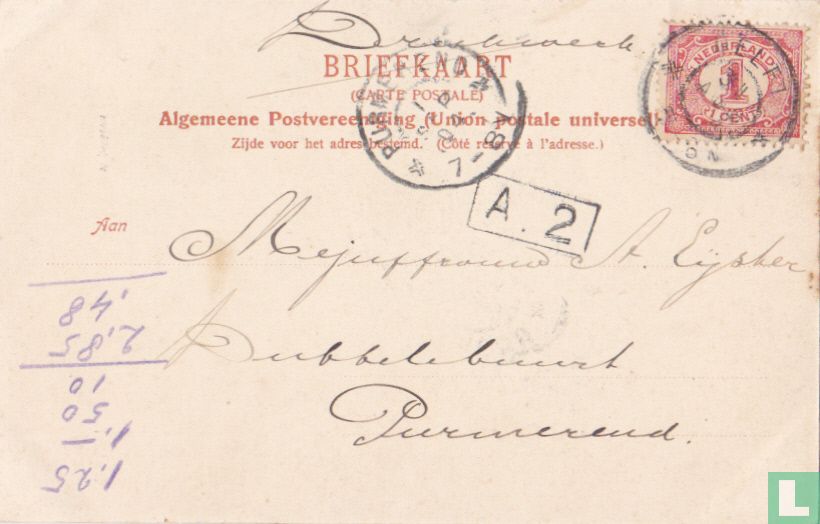 Drukwerk.
BRIEFKAART
(CARTE POSTALE)
Algemeene Postvereeniging (Union postale universelle)
Zijde voor het adres bestemd. (Côté réservé à l'adresse.)
NEDERLAND
1
CENT
PURMEREND
7-8
DELFT
A. 2
Aan
Mejuffrouw A. Eijsker
Dubbelebuurt
Purmerend.
1.25
1.—
50
10
2.85
.48